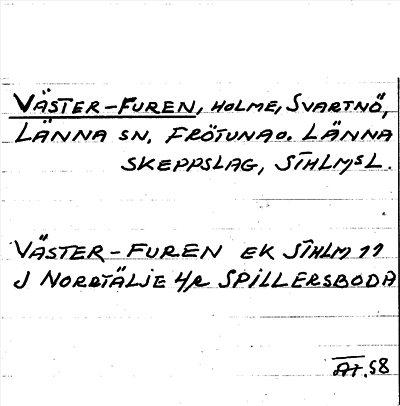 VÄSTER-FUREN, HOLME, SVARTNÖ,
LÄNNA SN. FRÖTUNA O. LÄNNA
SKEPPSLAG, STHLMS L.
VÄSTER-FUREN EK STHLM 11
J NORRTÄLJE 4R SPILLERSBODA
AT. 58